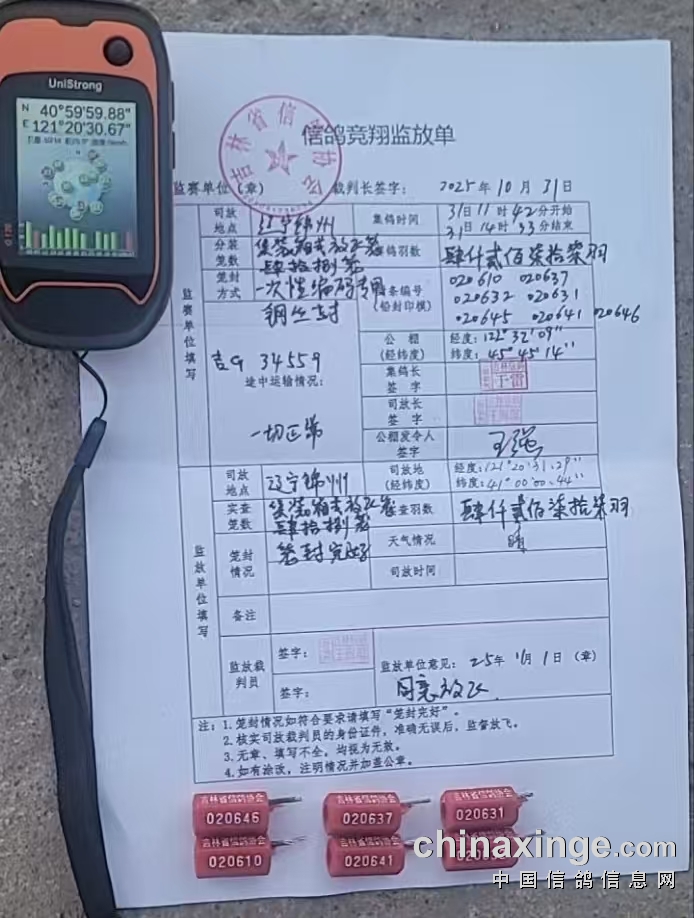 UniStrong
N 40°59'59.88"
E 121°20'30.67"
吉林省信鸽协会
信鸽竞翔监放单
监赛单位(章) 裁判长签字: 2025年10月31日
监赛单位填写
司放地点 辽宁锦州 集鸽时间 31日11时42分开始
31日14时33分结束
分装笼数 集装箱式放飞笼 肆拾捌笼 集鸽羽数 肆仟贰佰柒拾柒羽
笼封方式 一次性编码专用 钢丝封 封条编号(铅封印模) 020610 020637
020632 020631
020645 020641 020646
吉G 34559
途中运输情况:
一切正常
公棚(经纬度) 经度: 122°32'09"
纬度: 45°45'14"
集鸽长签字 于雷
司放长签字
公棚发令人签字 王强
监放单位填写
司放地点 辽宁锦州 司放地(经纬度) 经度: 121°20'31.29"
纬度: 41°00'00.44"
实查笼数 集装箱式放飞笼 肆拾捌笼 实查羽数 肆仟贰佰柒拾柒羽
笼封情况 笼封完好 天气情况 晴
司放时间
备注
监放裁判员 签字:
签字:
监放单位意见: 25年11月1日(章)
同意放飞
注: 1.笼封情况如符合要求请填写“笼封完好”。
2.核实司放裁判员的身份证件,准确无误后,监督放飞。
3.无章、填写不全,均视为无效。
4.如有涂改,注明情况并加盖公章。
吉林省信鸽协会 020646
吉林省信鸽协会 020637
吉林省信鸽协会 020631
吉林省信鸽协会 020610
吉林省信鸽协会 020641
chinaxinge.com
中国信鸽信息网